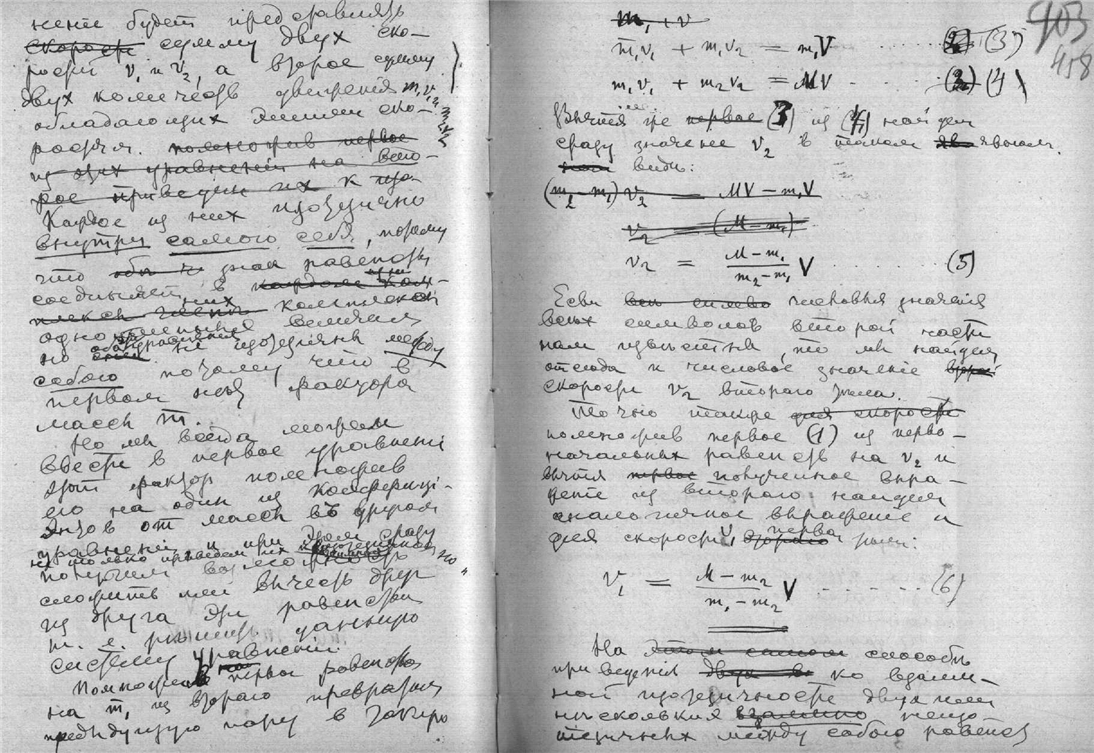 нение будетъ представлять
скорости сумму двух ско-
ростей v₁ и v₂, а второе сумму
двух количеств движения m₁v₁,
m₂v₂
обладающих этими ско-
ростями. помножив первое
из этих уравнений на
рое приведем их к
Каждое из них идэнтично
внутри самого себя, потому
что знак равенства
соединяет в
них комплексы
величин
но не идэнтичны между
собою потому что в
первом нет фактора
массы m.
Но мы всегда можем
ввести в первое уравнение
этот фактор помножив
его на один из коэффици-
энтов от массы въ другом
уравнении и при этом сразу
не только приведем их но
получим возможность
сложить или вычесть друг
из друга эти равенства
т. е. решить данную
систему уравнений.
Помножив первое равенство
на m₁ из второго превратим
предыдущую пару в такую
403
458
m₁ + v
m₁v₁ + m₁v₂ = m₁V ...... (3)
m₁v₁ + m₂v₂ = MV ...... (4)
Вычтя же первое (3) из (4) найдем
сразу значение v₂ в таком явном
виде:
(m₂ - m₁) v₂ = MV - m₁V
v₂ (M - m₁)
v₂ = (M - m₁)/(m₂ - m₁) V ...... (5)
Если числовыя значения
всех символов второй части
нам известны, то мы найдем
отсюда и числовое значение
скорости v₂ второго тела.
Точно также для скорости
помножив первое (1) из перво-
начальных равенств на v₂ и
вычтя первое полученное выра-
жение из второго найдем
аналогичное выражение и
для скорости v₁ первого тела:
v₁ = (M - m₂)/(m₁ - m₂) V ...... (6)
На этом самом способе
приведения двух ко взаим-
ной идэнтичности двух или
нескольких взаимно неидэ-
нтичных между собою равенств